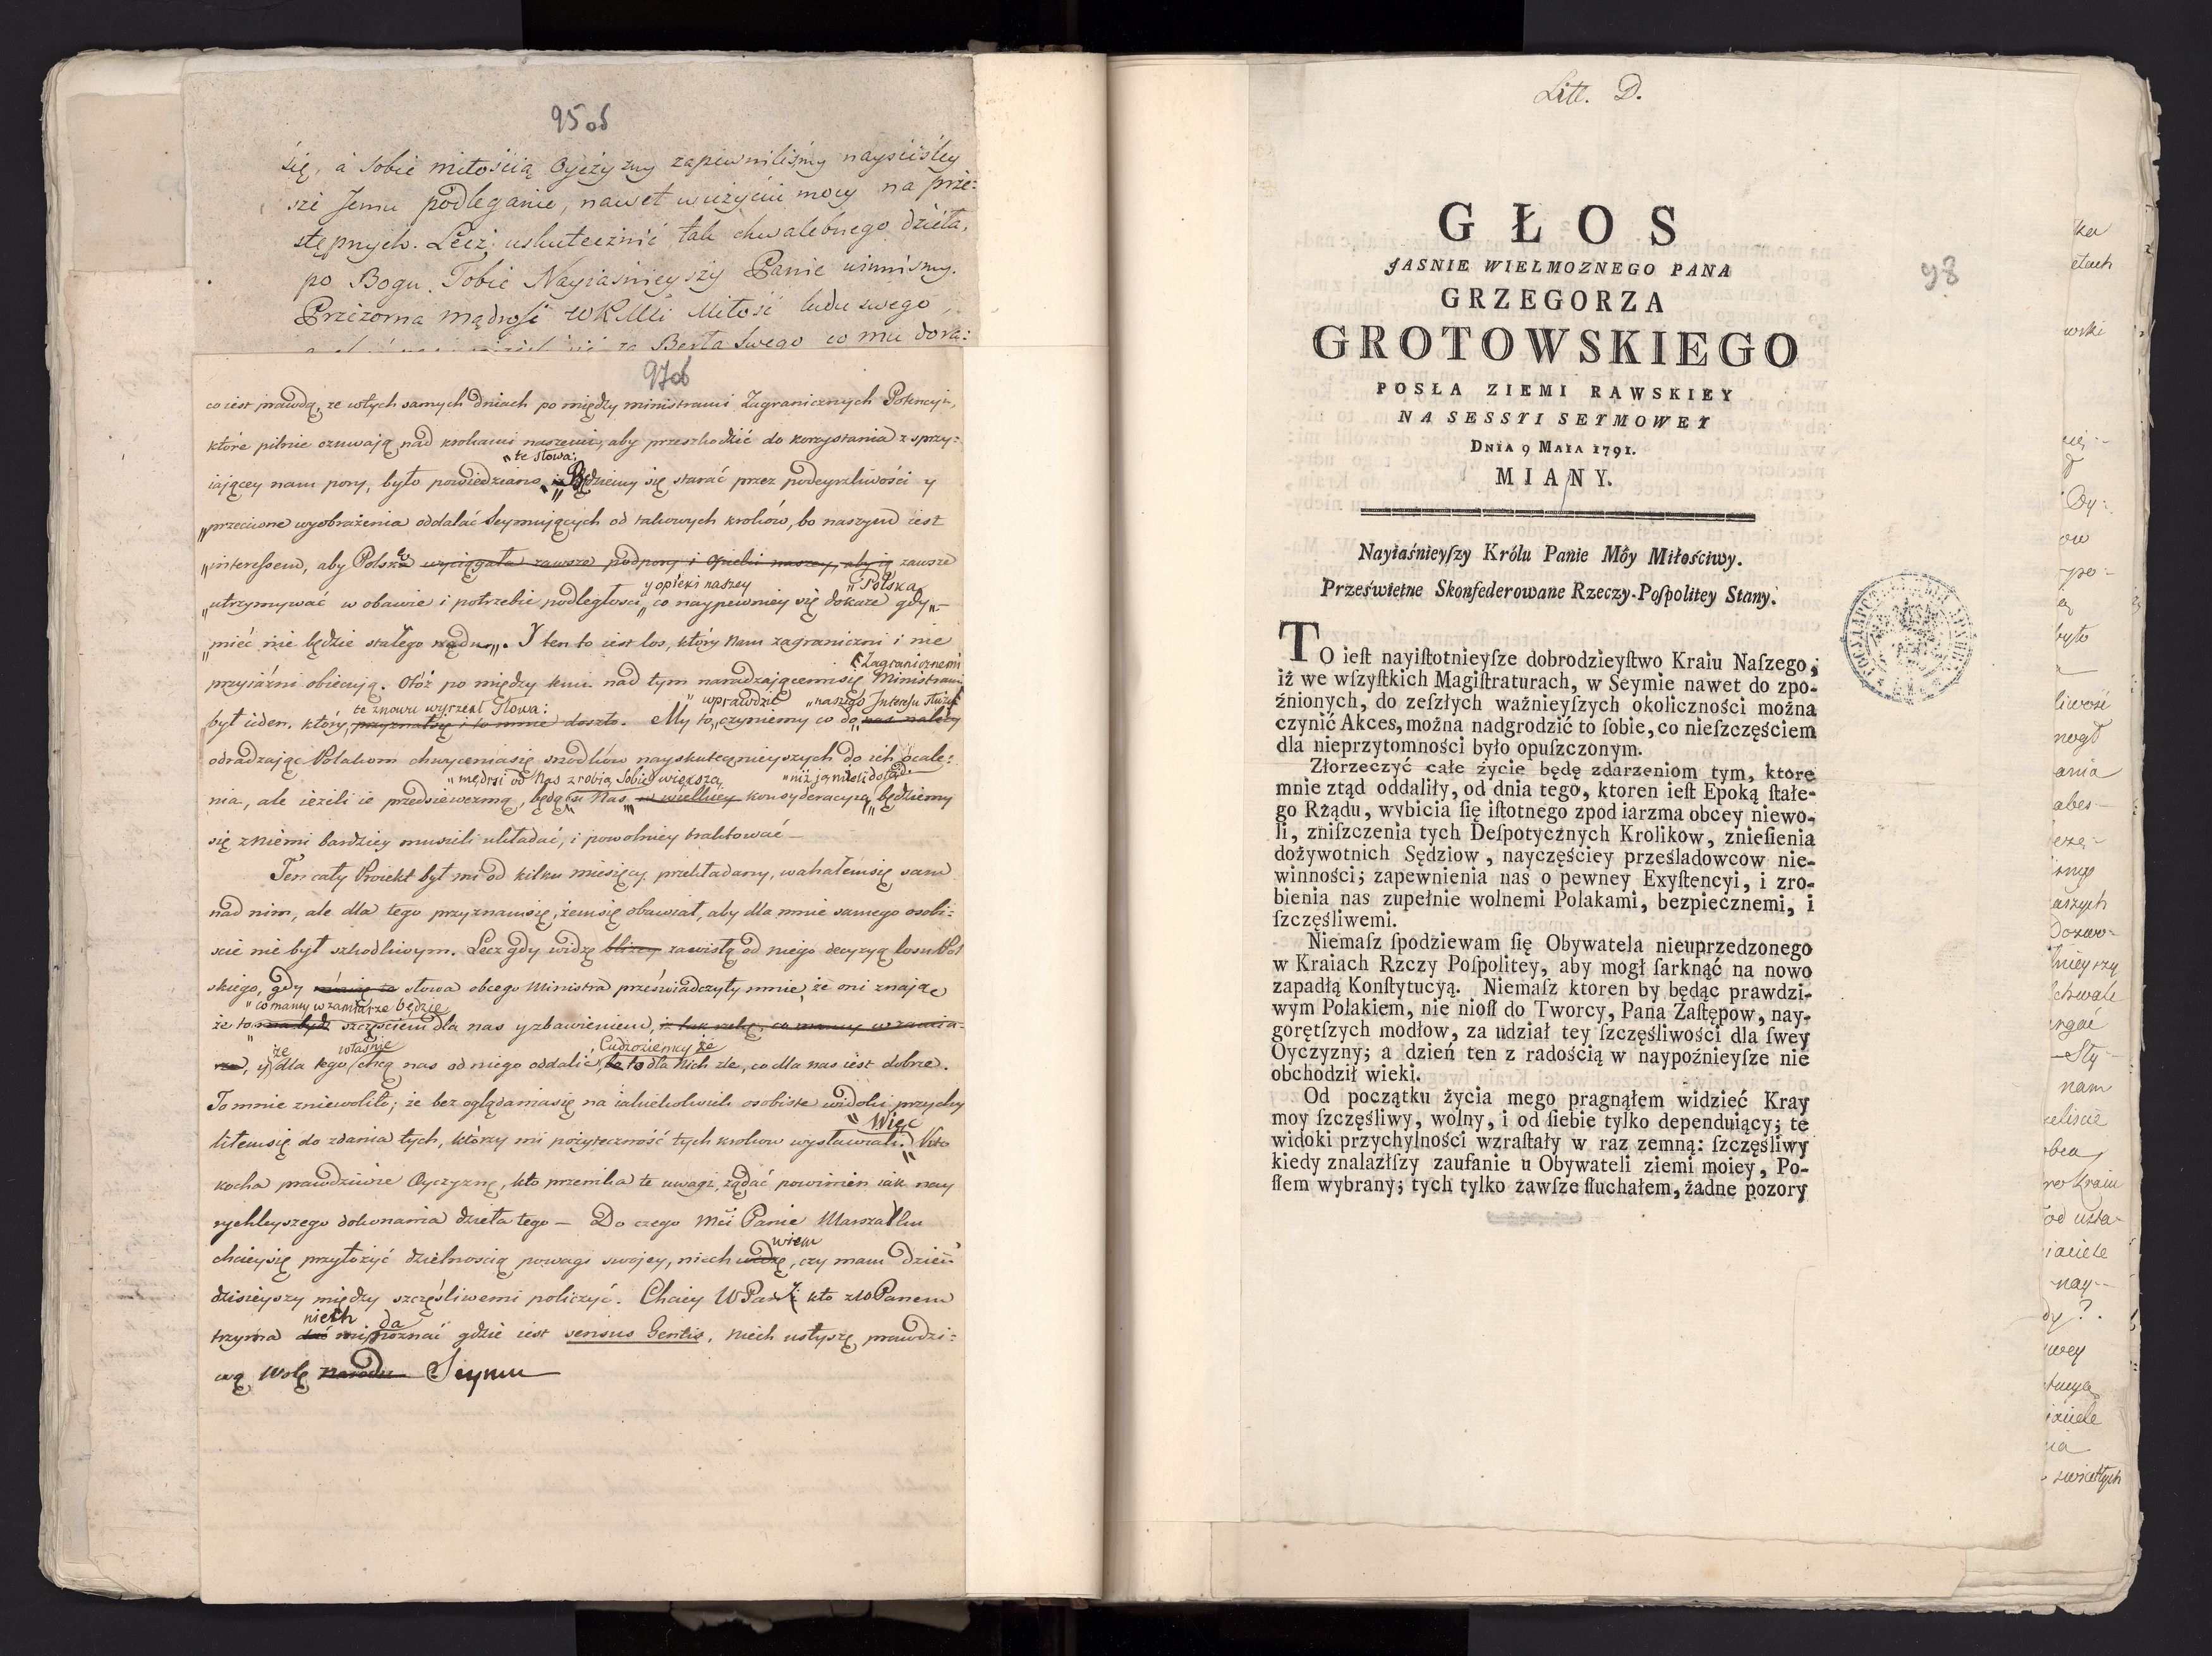 95 ob
się, a sobie miłością Oyczyzny zapewniliśmy nayściśley
sze Jemu podleganie, nawet w użyciu mocy na prze:
stępnych. Lecz uskutecznić tak chwalebnego dzieła,
po Bogu, Tobie Nayiaśnieyszy Panie winniśmy.
Przezorna mądrość WKMci Miłość ludu swego
za Berła Swego co mu dora:
97 ob
co iest prawdą, że w tych samych dniach po między ministrami Zagranicznych Potencyi,
które pilnie czuwają nad krokami naszemi, aby przeszkodzić do korzystania z sprzy:
„te słowa:
iaiącey nam pory, było powiedziano, iż Będziemy się starać przez podeyrzliwości y
„przeciwne wyobrażenia oddalać Seymuiących od takowych kroków, bo naszym iest
„interessem, aby Polskę wyciągała zawsze podpory i opieki naszey, aby ią zawsze
y opieki naszey „Polska
„utrzymywać w obawie i potrzebie podległości, co naypewniey się dokaże gdy„
„mieć nie będzie stałego rządu„. Y ten to iest los, który Nam zagraniczni i nie
Zagranicznemi
przyiaźni obiecuią. Otóż po między kmi. nad tym naradzaiącemisię Ministrami
te znowu wyrzekł Słowa: „wprawdzie „naszego Interesu służyć
był ieden, który przyznał się i to mnie doszło. My to„czyniemy co do„nas należy
odradzaiąc Polakom chwyceniasię srzodków nayskutecznieyszych do ich ocale:
„mędrsi od Nas zrobią Sobie większą „niż ią mieli dotąd.
nia, ale ieżeli ie przedsiewezmą, będą u Nas w wielkiey konsyderacyią, będziemy
się z niemi bardziey musieli układać, i powolniey traktować —
Ten cały Proiekt był mi od kilku miesięcy przekładany, wahałemsię sam
nad nim, ale dla tego przyznamsię, żemsię obawiał, aby dla mnie samego osobi:
scie nie był szkodliwym. Lecz gdy widzę bliżey zawisłą od niego decyzyą losu Pol
skiego, gdy słowa obcego Ministra przeświadczyły mnie, że oni znaiąc
„co mamy w zamiarze będzie
że to ma bydź szczęściem dla nas y zbawieniem, iż tak rzekę, co mamy w zamia:
że właśnie Cudzoziemcy że
rze, y dla tego chcą nas od niego oddalić, że to dla Nich złe, co dla nas iest dobre.
To mnie zniewoliło; że bez oglądaniasię na iakiekolwiek osobiste widoki przychy
„Więc
liłemsię do zdania tych, którzy mi pożyteczność tych krokow wystawiali. Kto
kocha prawdziwie Oyczyznę, kto przenika te uwagi, żądać powinien iak nay
rychleyszego dokonania dzieła tego — Do czego Mci Panie Marszałku
wiem
chcieysię przyłożyć dzielnością powagi swojey, niech widzę, czy mam Dzień
dzisieyszy między szczęśliwemi policzyć. Chciey WPan kto z WPanem
niech da
trzyma dać mi poznać gdzie iest sensus Gentis, niech usłyszę prawdzi:
wą Wolę Narodu Seymu
Litt. D.
98
GŁOS
JASNIE WIELMOZNEGO PANA
GRZEGORZA
GROTOWSKIEGO
POSŁA ZIEMI RAWSKIEY
NA SESSYI SEYMOWEY
DNIA 9 MAIA 1791.
MIANY.
Nayiaśnieyſzy Królu Panie Móy Miłościwy.
Prześwietne Skonfederowane Rzeczy-Poſpolitey Stany.
TO ieſt nayiſtotnieyſze dobrodzieyſtwo Kraiu Naſzego,
iż we wſzyſtkich Magiſtraturach, w Seymie nawet do zpo-
źnionych, do zeſzłych ważnieyſzych okoliczności można
czynić Akces, można nadgrodzić to ſobie, co nieſzczęściem
dla nieprzytomności było opuſzczonym.
Złorzeczyć całe życie będę zdarzeniom tym, ktore
mnie ztąd oddaliły, od dnia tego, ktoren ieſt Epoką ſtałe-
go Rządu, wybicia ſię iſtotnego zpod iarzma obcey niewo-
li, zniſzczenia tych Deſpotycznych Krolikow, znieſienia
dożywotnich Sędziow, nayczęściey prześladowcow nie-
winności; zapewnienia nas o pewney Exyſtencyi, i zro-
bienia nas zupełnie wolnemi Polakami, bezpiecznemi, i
ſzczęśliwemi.
Niemaſz ſpodziewam ſię Obywatela nieuprzedzonego
w Kraiach Rzczy Poſpolitey, aby mogł ſarknąć na nowo
zapadłą Konſtytucyą. Niemaſz ktoren by będąc prawdzi-
wym Polakiem, nie nioſł do Tworcy, Pana Zaſtępow, nay-
gorętſzych modłow, za udział tey ſzczęśliwości dla ſwey
Oyczyzny; a dzień ten z radością w naypoźnieyſze nie
obchodził wieki.
Od początku życia mego pragnąłem widzieć Kray
moy ſzczęśliwy, wolny, i od ſiebie tylko dependuiący; te
widoki przychylności wzraſtały w raz zemną: ſzczęśliwy
kiedy znalazłſzy zaufanie u Obywateli ziemi moiey, Po-
ſłem wybrany; tych tylko zawſze ſłuchałem, żadne pozory